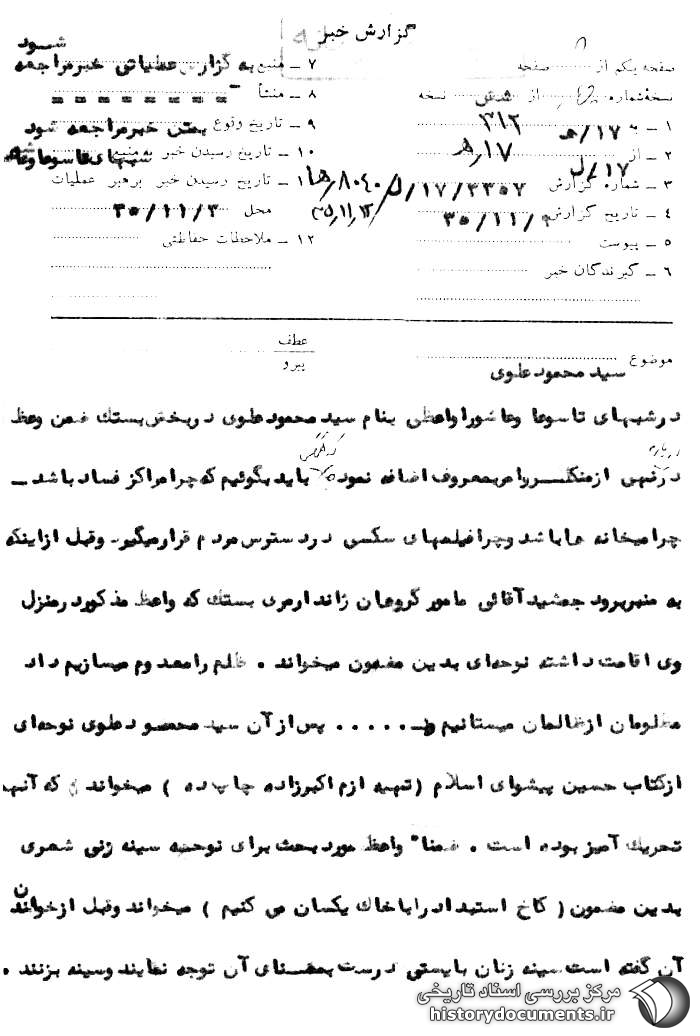 گزارش خبر
صفحه یکم از صفحه
نسخه شماره از شش نسخه
۱ ـ به ۳۱۲
۲ ـ از ۱۷/ه
۳ ـ شماره گزارش
۴ ـ تاریخ گزارش
۵ ـ پیوست
۶ ـ گیرندگان خبر
شود
۷ ـ منبع به گزارش عملیاتی خبر مراجعه
۸ ـ منشأ
۹ ـ تاریخ وقوع بمتن خبر مراجعه شود
۱۰ ـ تاریخ رسیدن خبر به منبع شبهای تاسوعا و
۱۱ ـ تاریخ رسیدن خبر برهبر عملیات
محل ۳۵/۱۱/۳
۱۲ ـ ملاحظات حفاظتی
عطف
پیرو
موضوع سید محمود علوی
در شبهای تاسوعا و عاشورا واعظی بنام سید محمود علوی در بخش بستک ضمن وعظ
درباره
در نهی از منکر و امر بمعروف اضافه نموده باید بگوئیم که چرا مراکز فساد باشد ـ
چرا میخانه ها باشد و چرا فیلمهای سکسی در دسترس مردم قرار میگیرد و قبل از اینکه
به منبر برود جمشید آقائی مامور گروهان ژاندارمری بستک که واعظ مذکور در منزل
وی اقامت داشته نوحه‌ای بدین مضمون میخواند . ظلم را معدوم میسازیم داد
مظلومان از ظالمان میستانیم و ..... پس از آن سید محمود علوی نوحه‌ای
از کتاب حسین پیشوای اسلام (تهیه از م اکبرزاده چاپ ده ) میخواند که آنهم
تحریک آمیز بوده است . ضمنا" واعظ مورد بحث برای نوحه سینه زنی شعری
بدین مضمون ( کاخ استبداد را با خاک یکسان می کنیم ) میخواند و قبل از خواندن
آن گفته است سینه زنان بایستی درست بمعنای آن توجه نمایند و سینه بزنند .
مرکز بررسی اسناد تاریخی
historydocuments.ir